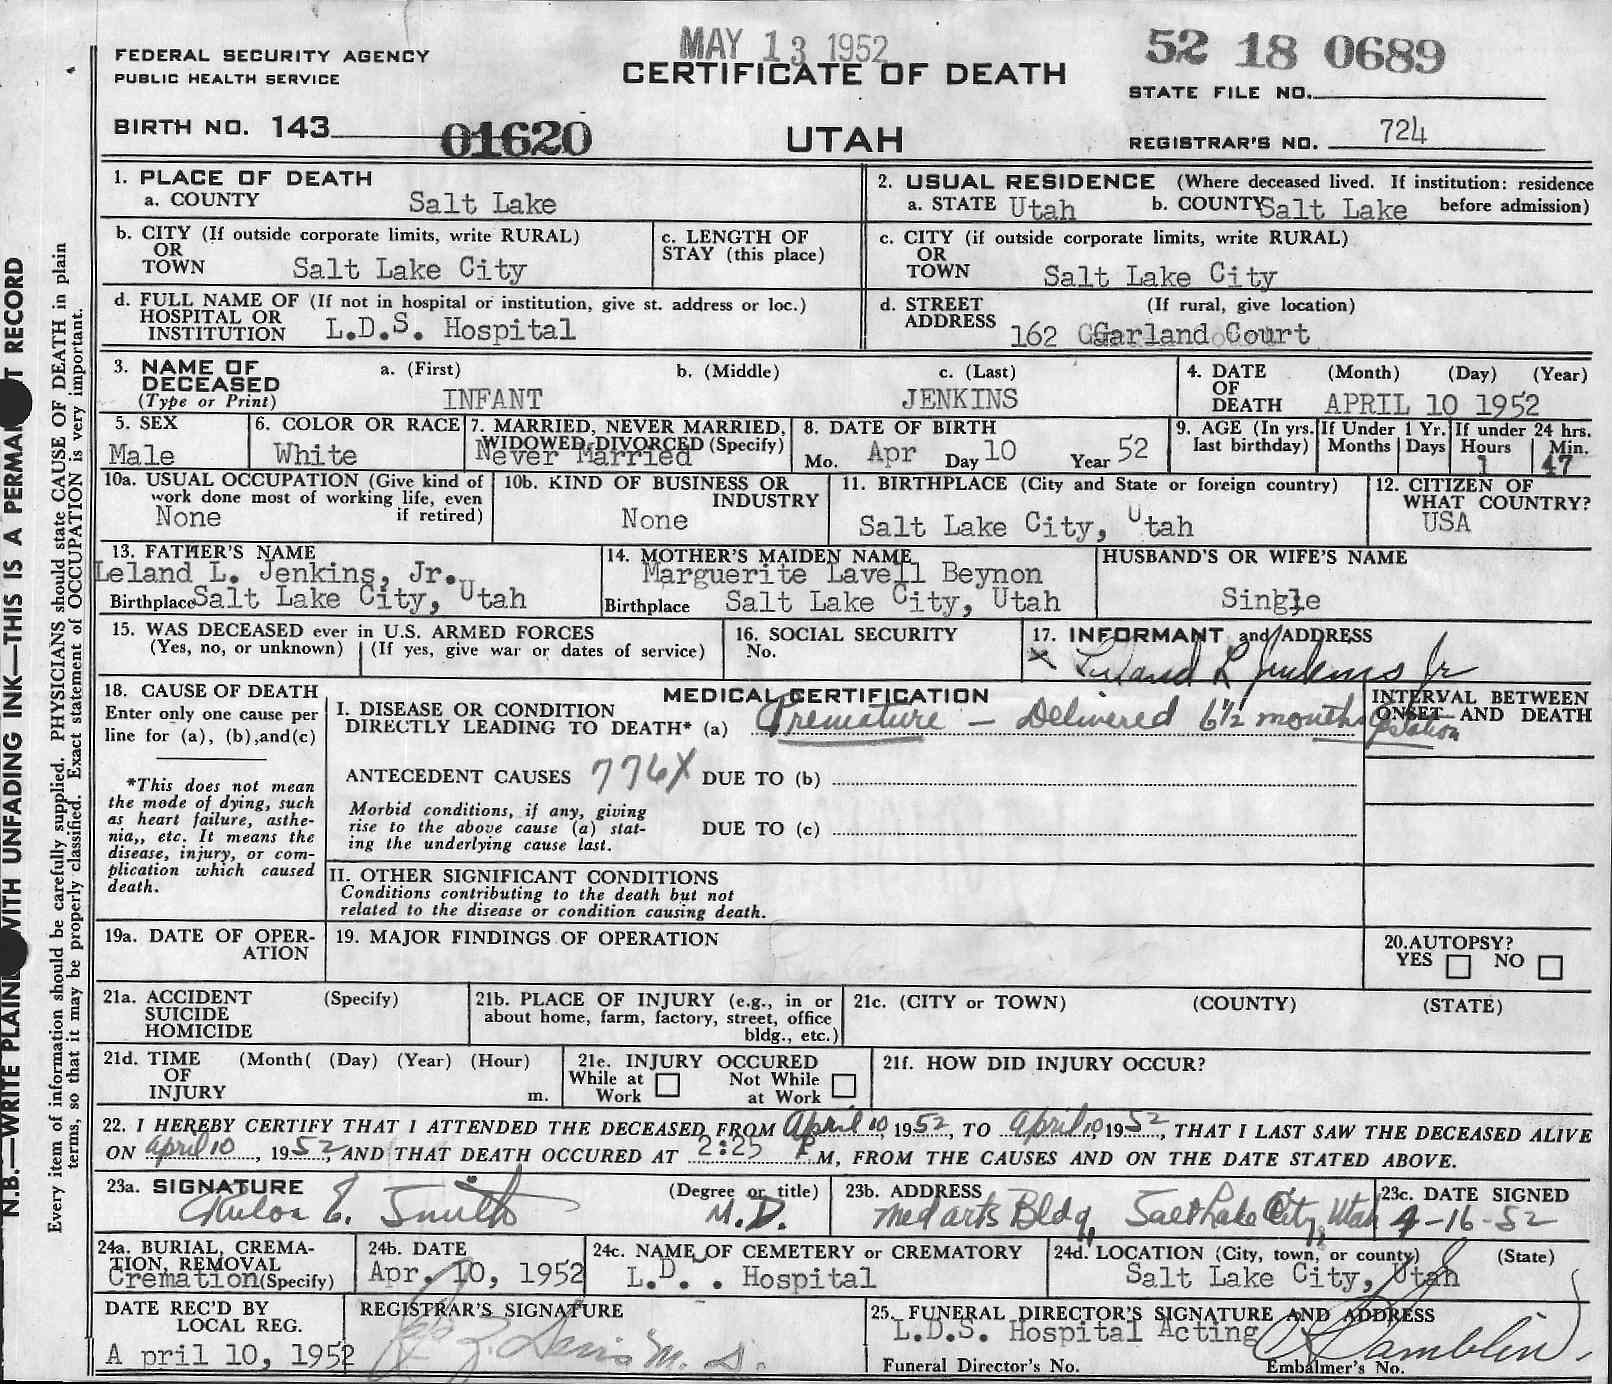 MAY 13 1952
52 18 0689
FEDERAL SECURITY AGENCY
PUBLIC HEALTH SERVICE
CERTIFICATE OF DEATH
STATE FILE NO.
BIRTH NO. 143 01620
UTAH
REGISTRAR'S NO. 724
1. PLACE OF DEATH
a. COUNTY Salt Lake
2. USUAL RESIDENCE (Where deceased lived. If institution: residence
a. STATE Utah b. COUNTY Salt Lake before admission)
b. CITY (If outside corporate limits, write RURAL)
OR
TOWN Salt Lake City
c. LENGTH OF
STAY (this place)
c. CITY (if outside corporate limits, write RURAL)
OR
TOWN Salt Lake City
d. FULL NAME OF (If not in hospital or institution, give st. address or loc.)
HOSPITAL OR
INSTITUTION L.D.S. Hospital
d. STREET (If rural, give location)
ADDRESS 162 Garland Court
3. NAME OF a. (First) b. (Middle) c. (Last)
DECEASED
(Type or Print) INFANT JENKINS
4. DATE (Month) (Day) (Year)
OF
DEATH APRIL 10 1952
5. SEX
Male
6. COLOR OR RACE
White
7. MARRIED, NEVER MARRIED,
WIDOWED, DIVORCED (Specify)
Never Married
8. DATE OF BIRTH
Mo. Apr Day 10 Year 52
9. AGE (In yrs. last birthday)
If Under 1 Yr.
Months Days
If under 24 hrs.
Hours Min.
1 47
10a. USUAL OCCUPATION (Give kind of
work done most of working life, even
if retired)
None
10b. KIND OF BUSINESS OR
INDUSTRY
None
11. BIRTHPLACE (City and State or foreign country)
Salt Lake City, Utah
12. CITIZEN OF
WHAT COUNTRY?
USA
13. FATHER'S NAME
Leland L. Jenkins, Jr.
Birthplace Salt Lake City, Utah
14. MOTHER'S MAIDEN NAME
Marguerite Lavell Beynon
Birthplace Salt Lake City, Utah
HUSBAND'S OR WIFE'S NAME
Single
15. WAS DECEASED ever in U.S. ARMED FORCES
(Yes, no, or unknown) (If yes, give war or dates of service)
16. SOCIAL SECURITY
No.
17. INFORMANT and ADDRESS
x Leland L Jenkins Jr
18. CAUSE OF DEATH
Enter only one cause per
line for (a), (b),and(c)
*This does not mean
the mode of dying, such
as heart failure, asthe-
nia,, etc. It means the
disease, injury, or com-
plication which caused
death.
MEDICAL CERTIFICATION
INTERVAL BETWEEN
ONSET AND DEATH
I. DISEASE OR CONDITION
DIRECTLY LEADING TO DEATH* (a) Premature — Delivered 6½ months gestation
ANTECEDENT CAUSES 776X DUE TO (b)
Morbid conditions, if any, giving
rise to the above cause (a) stat-
ing the underlying cause last.
DUE TO (c)
II. OTHER SIGNIFICANT CONDITIONS
Conditions contributing to the death but not
related to the disease or condition causing death.
19a. DATE OF OPER-
ATION
19. MAJOR FINDINGS OF OPERATION
20.AUTOPSY?
YES NO
21a. ACCIDENT (Specify)
SUICIDE
HOMICIDE
21b. PLACE OF INJURY (e.g., in or
about home, farm, factory, street, office
bldg., etc.)
21c. (CITY or TOWN) (COUNTY) (STATE)
21d. TIME (Month( (Day) (Year) (Hour)
OF
INJURY m.
21e. INJURY OCCURED
While at Work Not While at Work
21f. HOW DID INJURY OCCUR?
22. I HEREBY CERTIFY THAT I ATTENDED THE DECEASED FROM April 10, 1952, TO April 10, 1952, THAT I LAST SAW THE DECEASED ALIVE
ON April 10, 1952, AND THAT DEATH OCCURED AT 2:25 P M, FROM THE CAUSES AND ON THE DATE STATED ABOVE.
23a. SIGNATURE (Degree or title)
E. Smith M.D.
23b. ADDRESS
Med arts Bldg, Salt Lake City, Utah
23c. DATE SIGNED
4-16-52
24a. BURIAL, CREMA-
TION, REMOVAL
Cremation (Specify)
24b. DATE
Apr. 10, 1952
24c. NAME OF CEMETERY or CREMATORY
L.D. . Hospital
24d. LOCATION (City, town, or county) (State)
Salt Lake City, Utah
DATE REC'D BY
LOCAL REG.
A pril 10, 1952
REGISTRAR'S SIGNATURE
M. D.
25. FUNERAL DIRECTOR'S SIGNATURE AND ADDRESS
L.D.S. Hospital Acting
Funeral Director's No. Embalmer's No.
N.B.—WRITE PLAINL WITH UNFADING INK—THIS IS A PERMA T RECORD
Every item of information should be carefully supplied. PHYSICIANS should state CAUSE OF DEATH in plain
terms, so that it may be properly classified. Exact statement of OCCUPATION is very important.